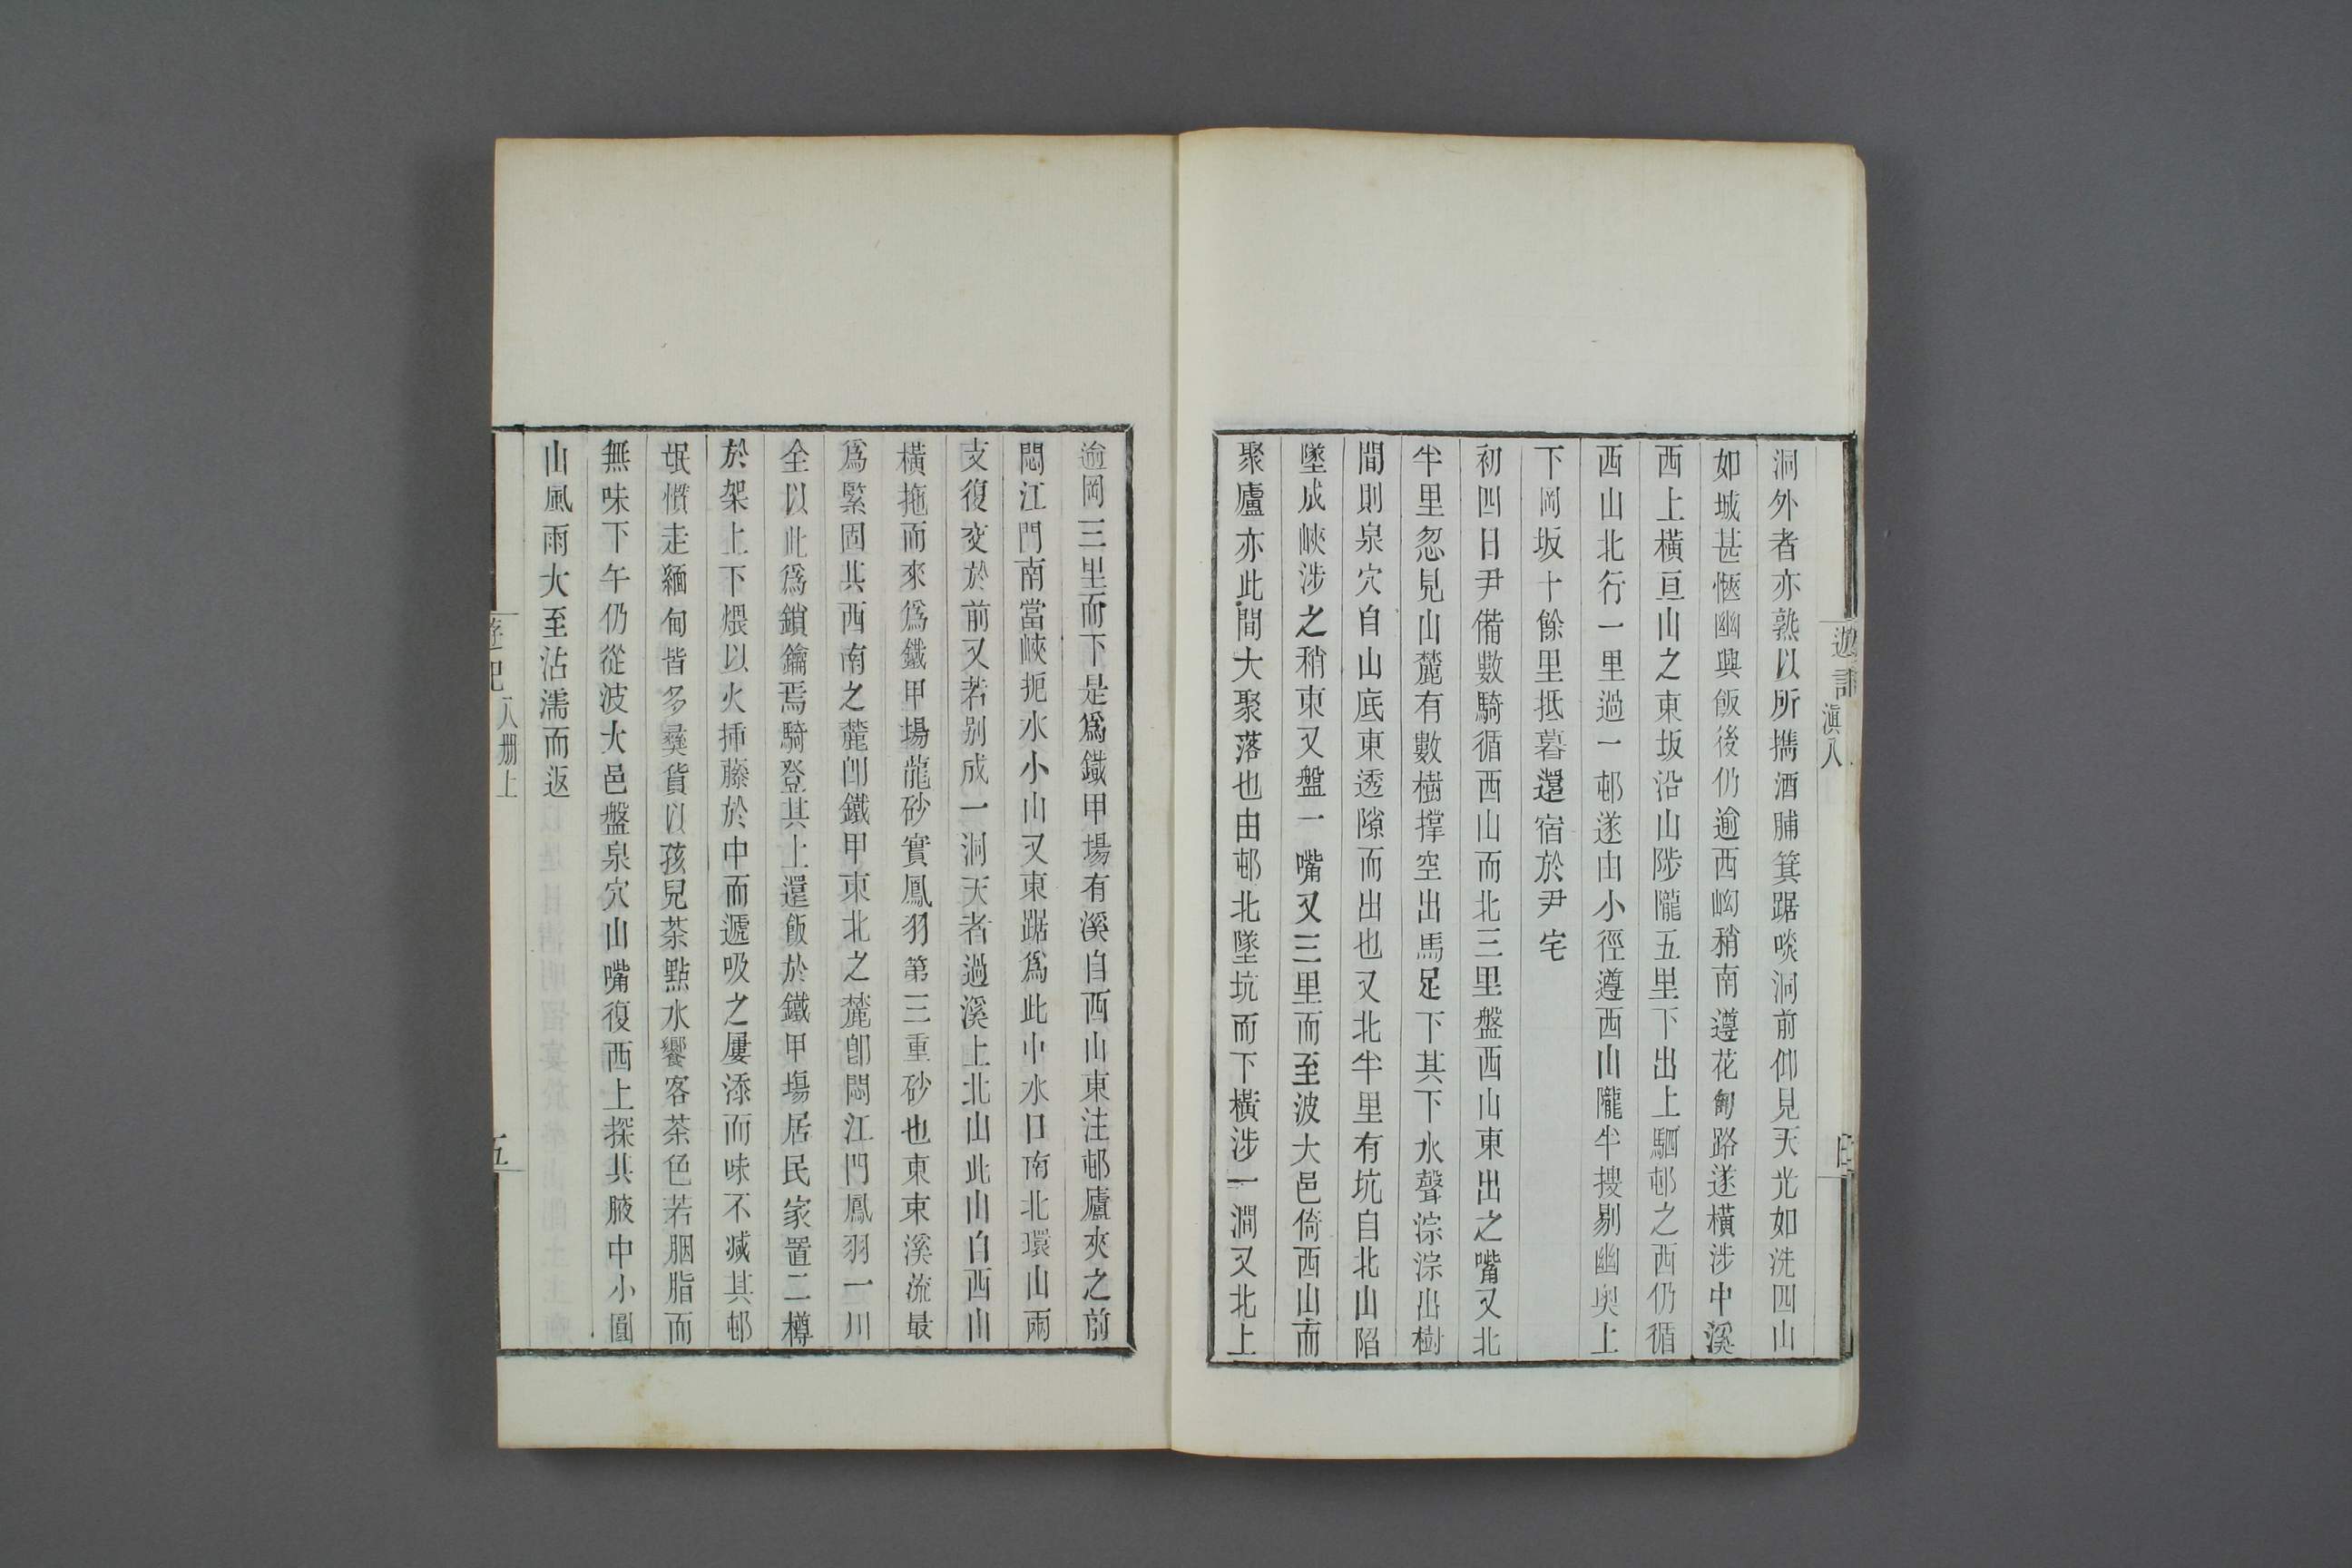 遊記
滇八
洞外者亦熟以所攜酒脯箕踞啖洞前仰見天光如洗四山
如城甚愜幽興飯後仍逾西㘭稍南遵花甸路遂橫涉中溪
西上橫亘山之東坂沿山陟隴五里下出上駟邨之西仍循
西山北行一里過一邨遂由小徑遵西山隴半搜剔幽奧上
下岡坂十餘里抵暮還宿於尹宅
初四日尹備數騎循西山而北三里盤西山東出之嘴又北
半里忽見山麓有數樹撐空出馬足下其下水聲淙淙出樹
間則泉穴自山底東透隙而出也又北半里有坑自北山陷
墜成峽涉之稍東又盤一嘴又三里而至波大邑倚西山而
聚廬亦此間大聚落也由邨北墜坑而下橫涉一澗又北上
逾岡三里而下是爲鐵甲場有溪自西山東注邨廬夾之前
悶江門南當峽扼水小山又東踞爲此中水口南北環山兩
支復交於前又若别成一洞天者過溪上北山此山自西山
橫拖而來爲鐵甲場龍砂實鳳羽第三重砂也東東溪流最
爲緊固其西南之麓卽鐵甲東北之麓卽悶江門鳳羽一川
全以此爲鎖鑰焉騎登其上還飯於鐵甲場居民家置二樽
於架上下煨以火插藤於中而遞吸之屢添而味不減其邨
氓慣走緬甸皆多彝貨以孩兒茶點水饗客茶色若胭脂而
無味下午仍從波大邑盤泉穴山嘴復西上探其腋中小圓
山風雨大至沾濡而返
遊記
八册上
五